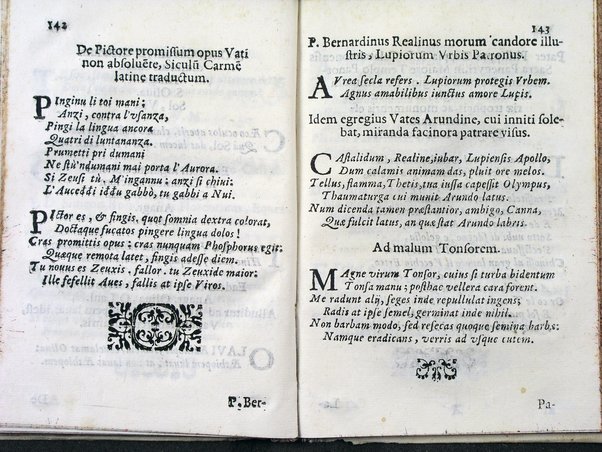 142
De Pictore promissum opus Vati
non absoluēte, Siculū Carmē
latine traductum.
PInginu li toi mani;
Anzi, contra l'usanza,
Pingi la lingua ancora
Quatri di luntananza.
Prumetti pri dumani
Ne stù'ndumani mai porta l'Aurora.
Si Zeusi tù, M'ingannu; anzi si chiui:
L'Aceddi iddu gabbò, tu gabbi a Nui.
PIctor es, & fingis, quot somnia dextra colorat,
Doctaque fucatos pingere lingua dolos!
Cras promittis opus: cras nunquam Phosphorus egit:
Quæque remota latet, fingis adesse diem.
Tu nouus es Zeuxis, fallor. tu Zeuxide maior:
Ille fefellit Aues, fallis at ipse Viros.
P. Ber-
143
P. Bernardinus Realinus morum candore illu-
stris, Lupiorum Vrbis Patronus.
AVrea secla refers. Lupiorum protegis Vrbem.
Agnus amabilibus iunctus amore Lupis.
Idem egregius Vates Arundine, cui inniti sole-
bat, miranda facinora patrare visus.
CAstalidum, Realine, iubar, Lupiensis Apollo,
Dum calamis animam das, pluit ore melos.
Tellus, flamma, Thetis, tua iussa capessit Olympus,
Thaumaturga cui munit Arundo latus.
Num dicenda tamen præstantior, ambigo, Canna,
Quæ fulcit latus, an quæ stat Arundo labris.
Ad malum Tonsorem.
MAgne virum Tonsor, cuius si turba bidentum
Tonsa manu; posthac vellera cara forent.
Me radunt alij, seges inde repullulat ingens;
Radis at ipse semel, germinat inde nihil.
Non barbam modo, sed resecas quoque semina barbæ:
Namque eradicans, verris ad usque cutem.
Pa-